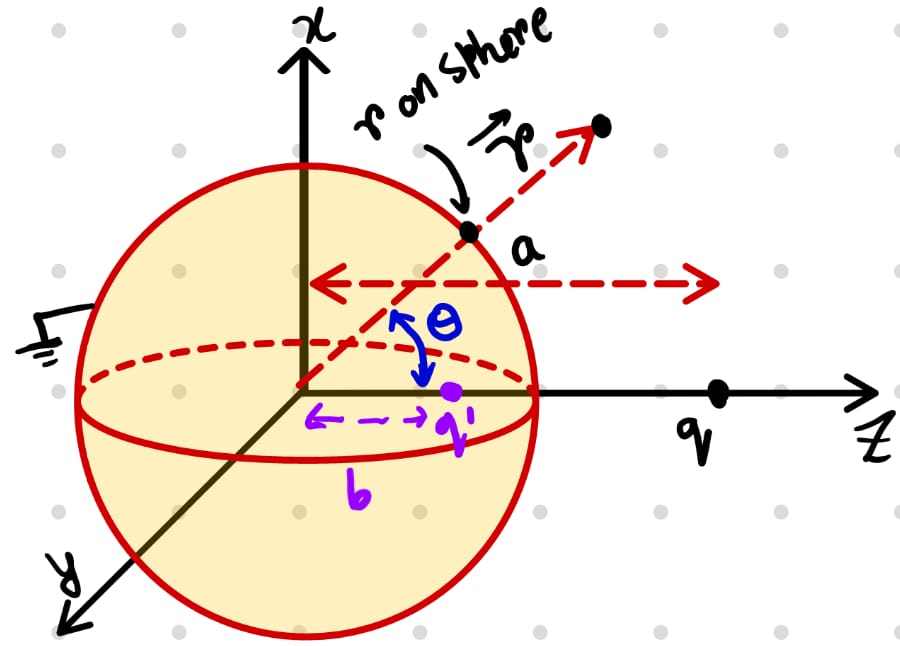 x
r on sphere
r
a
θ
q'
q
z
b
y